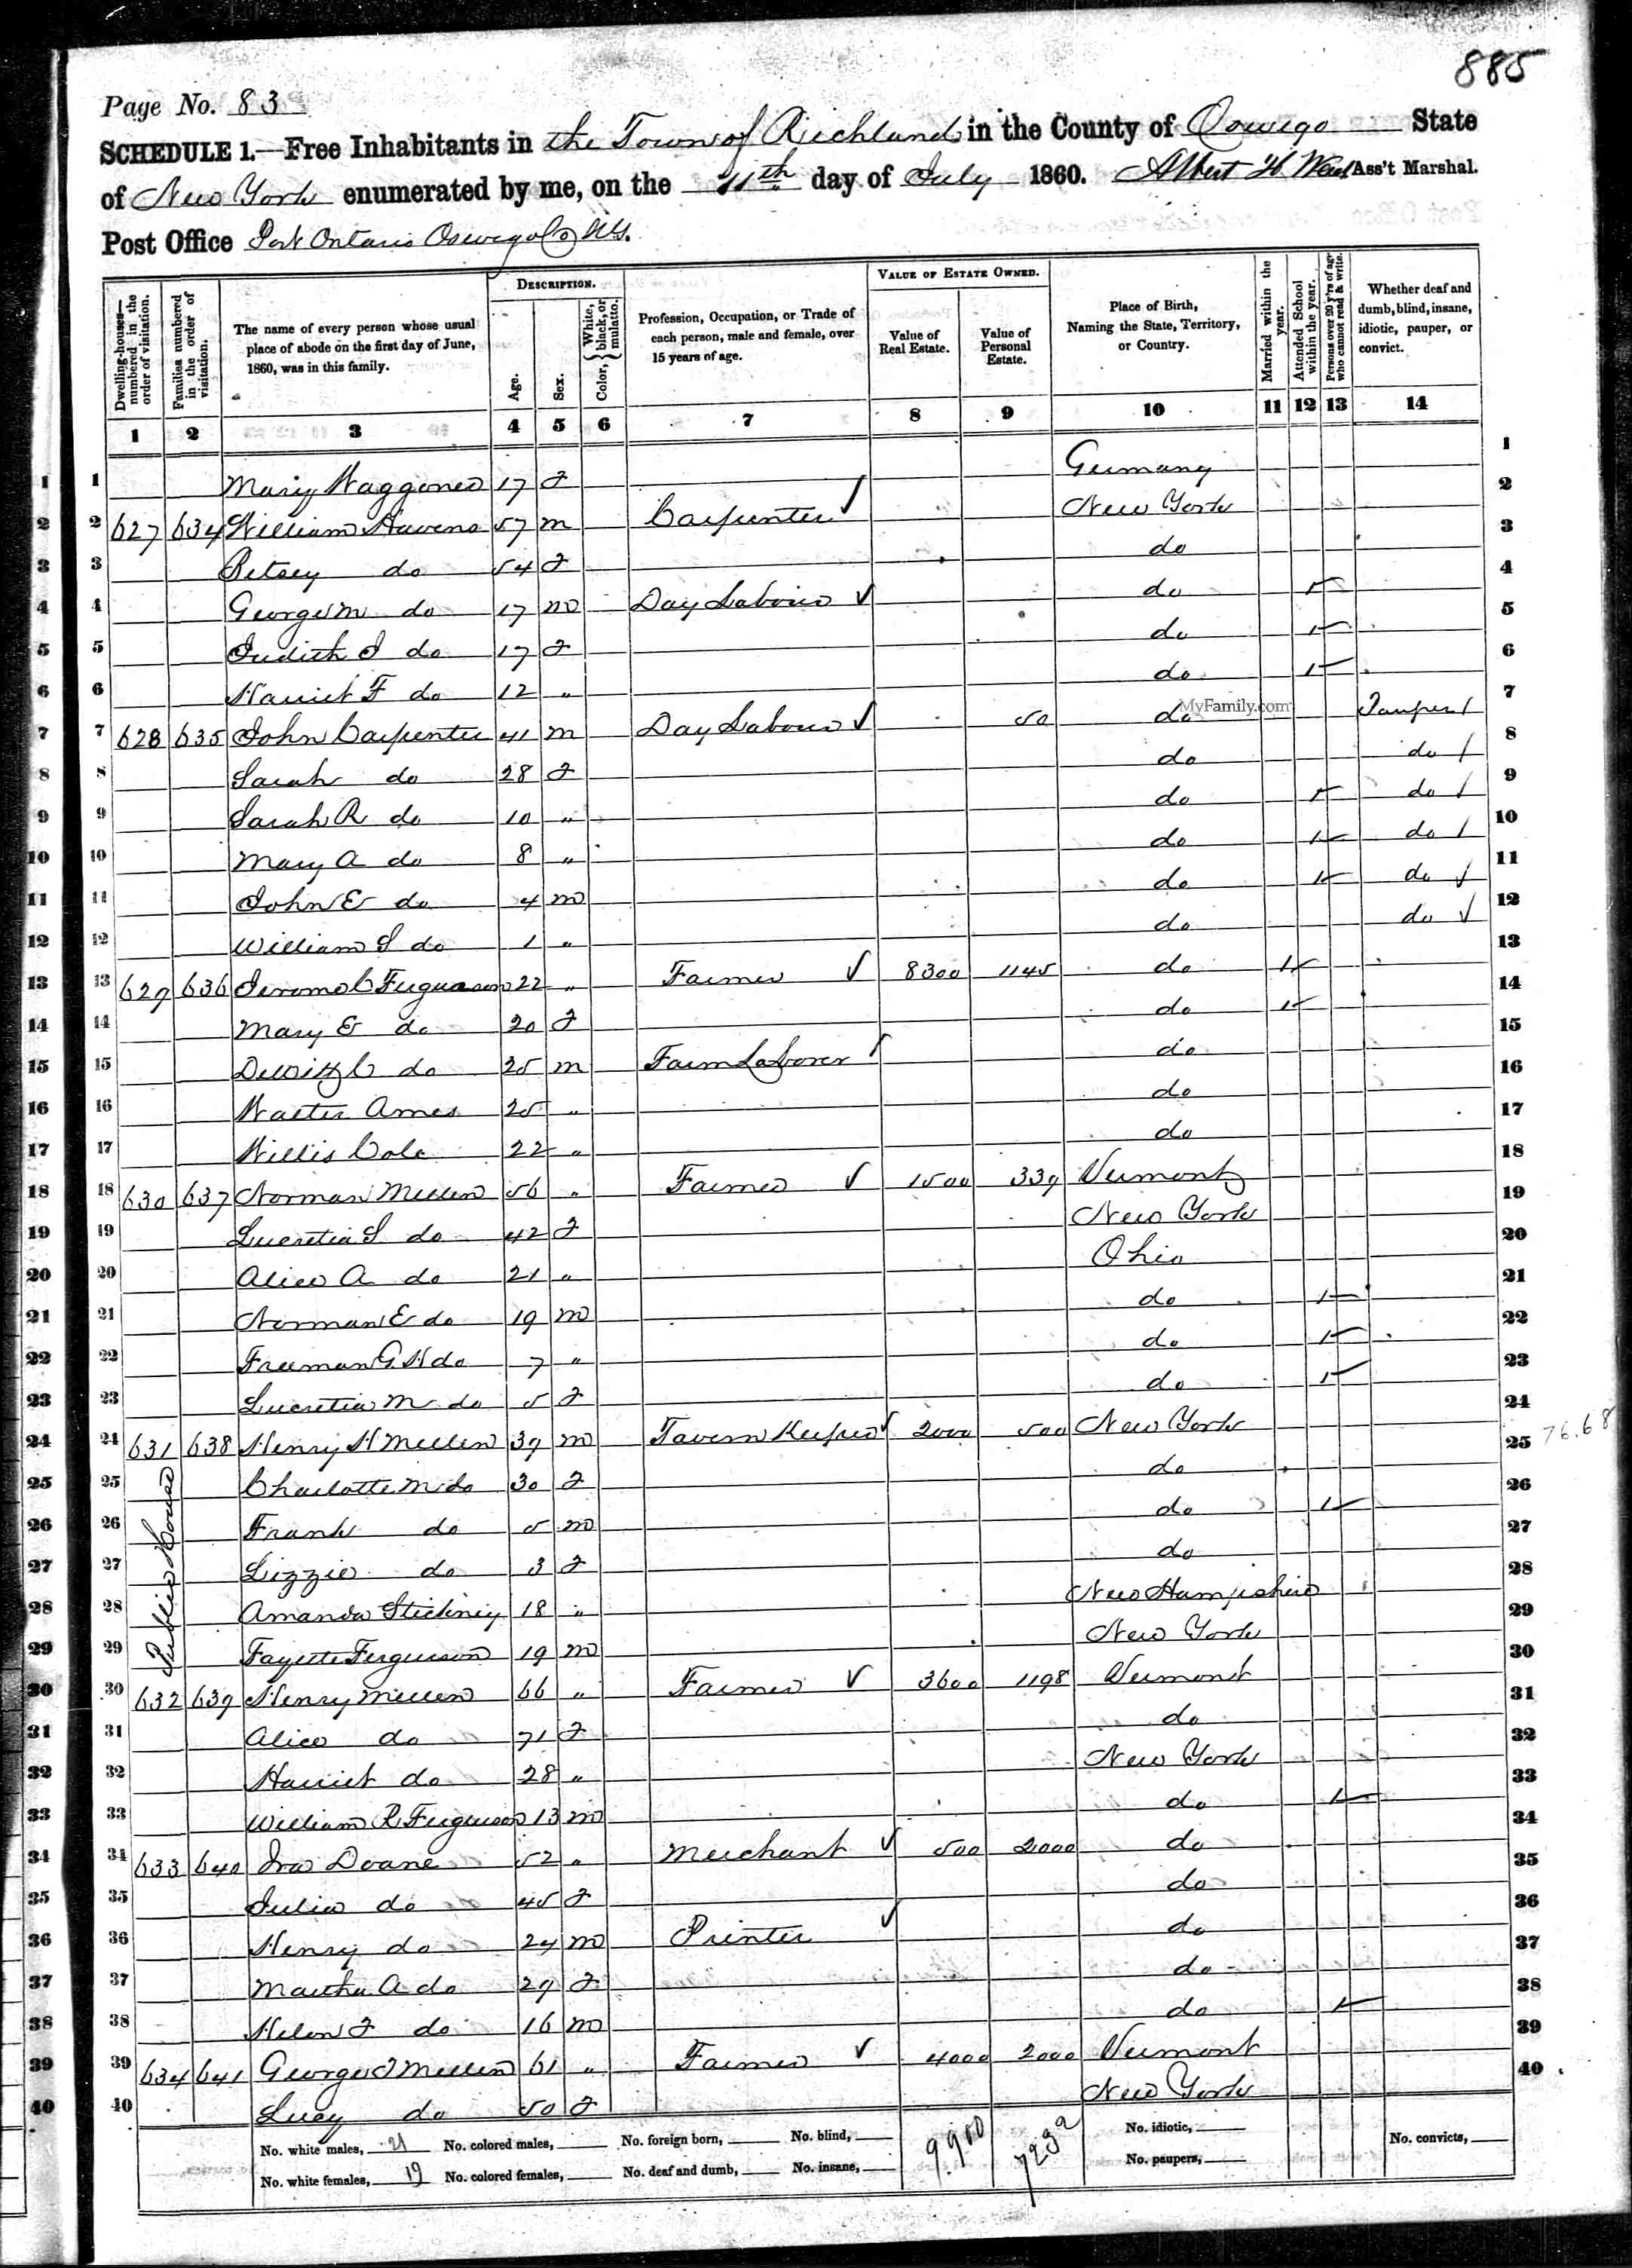 885
Page No. 83
SCHEDULE 1.—Free Inhabitants in the Town of Richland in the County of Oswego State
of New York enumerated by me, on the 11th day of July 1860. Albert H. Ass't Marshal.
Post Office Port Ontario Oswego Co NY.
Dwelling-houses—numbered in the order of visitation.
Families numbered in the order of visitation.
The name of every person whose usual place of abode on the first day of June, 1860, was in this family.
DESCRIPTION.
Age.
Sex.
Color, { White, black, or mulatto.
Profession, Occupation, or Trade of each person, male and female, over 15 years of age.
VALUE OF ESTATE OWNED.
Value of Real Estate.
Value of Personal Estate.
Place of Birth, Naming the State, Territory, or Country.
Married within the year.
Attended School within the year.
Persons over 20 y'rs of age who cannot read & write.
Whether deaf and dumb, blind, insane, idiotic, pauper, or convict.
1 2 3 4 5 6 7 8 9 10 11 12 13 14
1 1 Mary Waggoner 17 F Germany 1
2 2 627 634 William Havens 57 m Carpenter New York 2
3 3 Betsey do 54 F do 3
4 4 George M do 17 m Day Laborer do 4
5 5 Judith J do 17 F do 5
6 6 Harriet F do 12 " do 6
7 7 628 635 John Carpenter 41 m Day Laborer 50 do Pauper 7
8 8 Sarah do 28 F do do 8
9 9 Sarah R do 10 " do do 9
10 10 Mary A do 8 " do do 10
11 11 John E do 4 m do do 11
12 12 William S do 1 " do do 12
13 13 629 636 Jerome C Ferguson 22 " Farmer 8300 1145 do 13
14 14 Mary E do 20 F do 14
15 15 Dewitt C do 25 m Farm Laborer do 15
16 16 Walter Ames 25 " do 16
17 17 Willis Cole 22 " do 17
18 18 630 637 Norman Mellen 56 " Farmer 1500 339 Vermont 18
19 19 Lucretia S do 42 F New York 19
20 20 Alice A do 21 " Ohio 20
21 21 Norman E do 19 m do 21
22 22 Freeman G H do 7 " do 22
23 23 Lucretia M do 5 F do 23
24 24 631 638 Henry H Mellen 39 m Tavern Keeper 2000 500 New York 24
25 25 Charlotte M do 30 F do 25 76.68
26 26 Frank do 5 m do 26
27 27 Lizzie do 3 F do 27
28 28 Amanda Stickney 18 " New Hampshire 28
29 29 Fayette Ferguson 19 m New York 29
Public House
30 30 632 639 Henry Mellen 66 " Farmer 3600 1198 Vermont 30
31 31 Alice do 71 F do 31
32 32 Harriet do 28 " New York 32
33 33 William R Ferguson 13 m do 33
34 34 633 640 Ira Doane 52 " Merchant 500 2000 do 34
35 35 Julia do 45 F do 35
36 36 Henry do 24 m Printer do 36
37 37 Martha A do 29 F do 37
38 38 Helen F do 16 m do 38
39 39 634 641 George J Mellen 61 " Farmer 4000 2000 Vermont 39
40 40 Lucy do 50 F New York 40
No. white males, 21 No. colored males, No. foreign born, No. blind, No. idiotic,
No. white females, 19 No. colored females, No. deaf and dumb, No. insane, No. paupers, No. convicts,
MyFamily.com